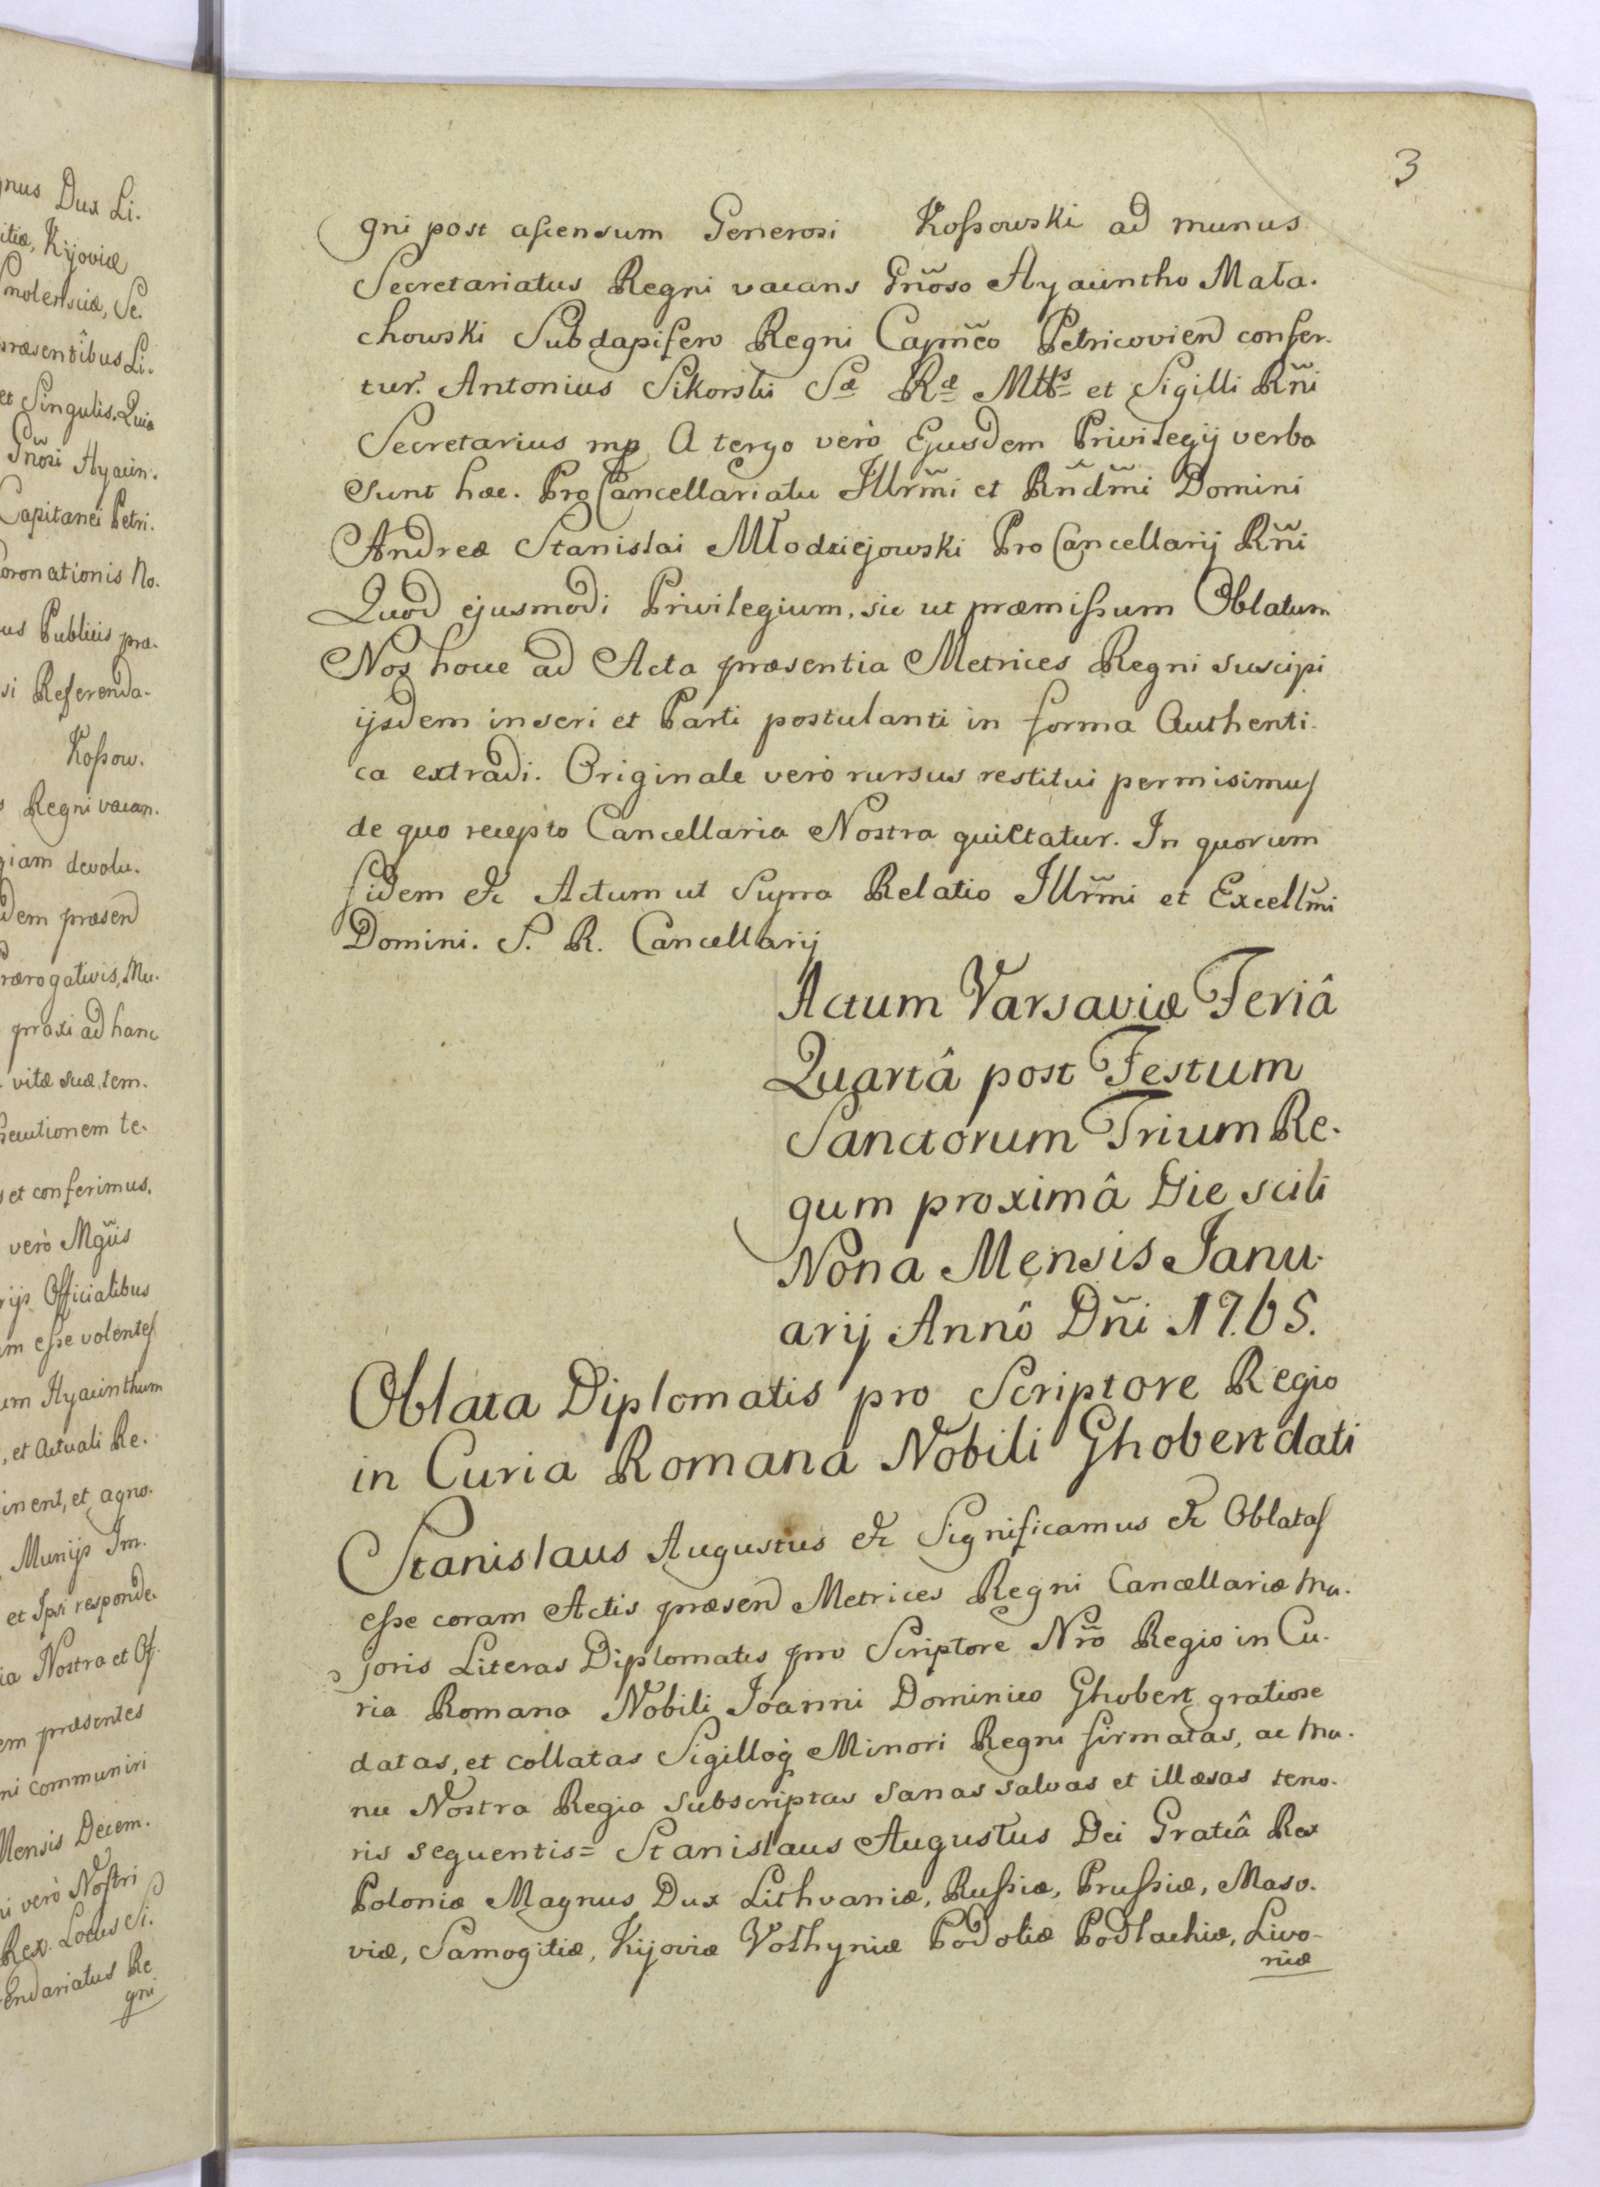 gnus Dux Li.
itiæ, Kijoviæ
molensciæ, Se.
præsentibus Li.
et Singulis. Quia
Gñosi Hyacin.
Capitanei Petri.
oronationis No.
us Publicis præ.
si Referenda.
Koſsow.
s Regni vacan.
giam devolu.
dem præsend
Prærogativis, Mu.
praxi ad hanc
vitæ suæ tem.
secutionem te.
s et conferimus,
verò Mgñis
rijs Officialibus
m eſse volentes
um Hyacinthum
, et Actuali Re.
inent, et agno.
Munijs Im.
et Ipsi responde.
ia Nostra et Of.
em præsentes
ni communiri
Mensis Decem.
i verò Nostri
Rex. Locus Si.
endariatus Re
gni
3
gni post aſcensum Generosi Koſsowski ad munus
Secretariatus Regni vacans Gñoso Hyacintho Mała.
chowski Subdapifero Regni Capñeo Petricovien confer.
tur. Antonius Sikorski Sæ Ræ Mttis et Sigilli Rñi
Secretarius mp A tergo verò Ejusdem Privilegij verba
sunt hæc. Pro Cancellariatu Illrm̃i et Rñdm̃i Domini
Andreæ Stanislai Młodziejowski Pro Cancellarij Rñi
Quod ejusmodi Privilegium, sic ut præmiſsum Oblatum
Nos hocce ad Acta præsentia Metrices Regni suscipi
ijsdem inseri et Parti postulanti in forma Authenti.
ca extradi. Originale verò rursus restitui permisimus
de quo recepto Cancellaria Nostra quittatur. In quorum
fidem &c Actum ut Supra Relatio Illrm̃i et Excellm̃i
Domini. S. R. Cancellarij
Actum Varsaviæ Feriâ
Quartâ post Festum
Sanctorum Trium Re.
gum proximâ Die scili
Nona Mensis Janu.
arij Annô Dñi 1765.
Oblata Diplomatis pro Scriptore Regio
in Curia Romana Nobili Ghobert dati
Stanislaus Augustus &c Significamus &c Oblatas
eſse coram Actis præsend Metrices Regni Cancellariæ Ma.
joris Literas Diplomatis pro Scriptore Nr̃o Regio in Cu.
ria Romana Nobili Joanni Dominico Ghobert gratiose
datas, et collatas Sigilloq̃ Minori Regni firmatas, ac Ma.
nu Nostra Regia subscriptas sanas salvas et illæsas teno.
ris sequentis= Stanislaus Augustus Dei Gratiâ Rex
Poloniæ Magnus Dux Lithvaniæ, Ruſsiæ, Pruſsiæ, Maso.
viæ, Samogitiæ, Kijoviæ Volhyniæ Podoliæ Podlachiæ, Livo-
niæ